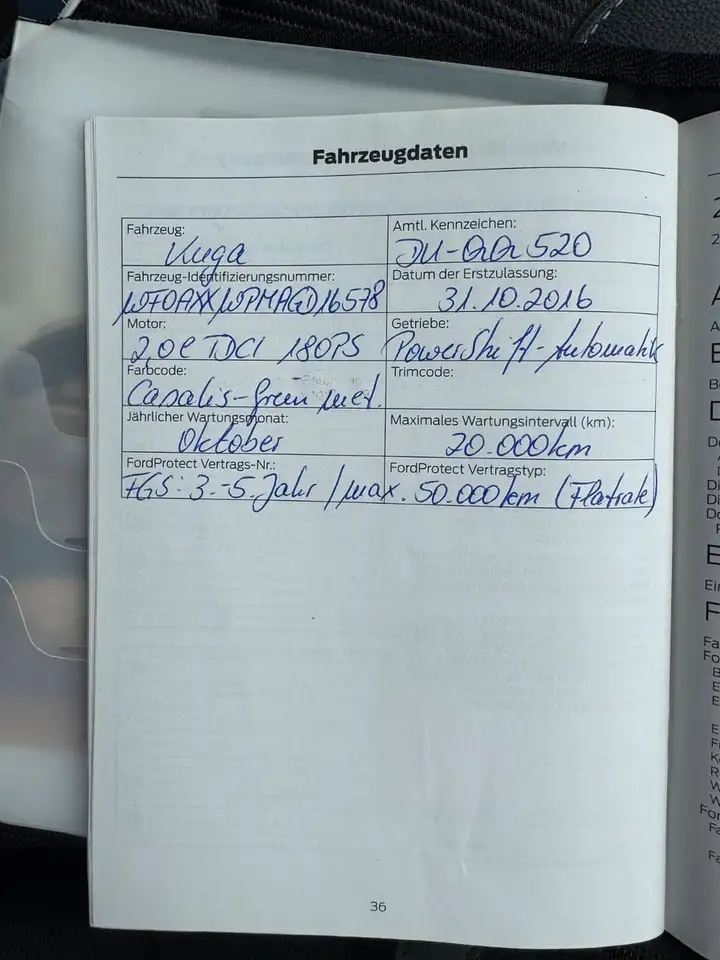 Fahrzeugdaten
Fahrzeug:
Kuga
Amtl. Kennzeichen:
520
Fahrzeug-Identifizierungsnummer:
WF0AXXWPMAGD16578
Datum der Erstzulassung:
31.10.2016
Motor:
2,0l TDCI 180PS
Getriebe:
PowerShift-Automatik
Farbcode:
-Green met.
Trimcode:
Jährlicher Wartungsmonat:
Oktober
Maximales Wartungsintervall (km):
20.000km
FordProtect Vertrags-Nr.:
FordProtect Vertragstyp:
FGS: 3.-5. Jahr / max. 50.000km (Flatrate)
36